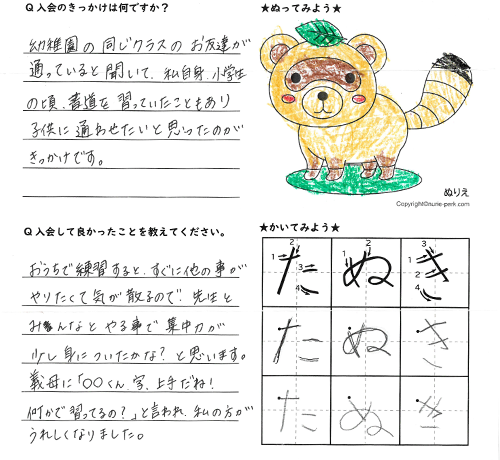 Q入会のきっかけは何ですか？
幼稚園の同じクラスのお友達が
通っていると聞いて、私自身、小学生
の頃、書道を習っていたこともあり
子供に通わせたいと思ったのが
きっかけです。
★ぬってみよう★
ぬりえ
Copyright©nurie-perk.com
Q入会して良かったことを教えてください。
おうちで練習すると、すぐに他の事が
やりたくて気が散るので、先生と
みんなとやる事で集中力が
少し身についたかな？と思います。
義母に「〇〇くん、字、上手だね！
何かで習ってるの？」と言われ、私の方が
うれしくなりました。
★かいてみよう★
1 2 3 4 た
1 2 ぬ
1 2 3 4 き
た ぬ き
た ぬ き